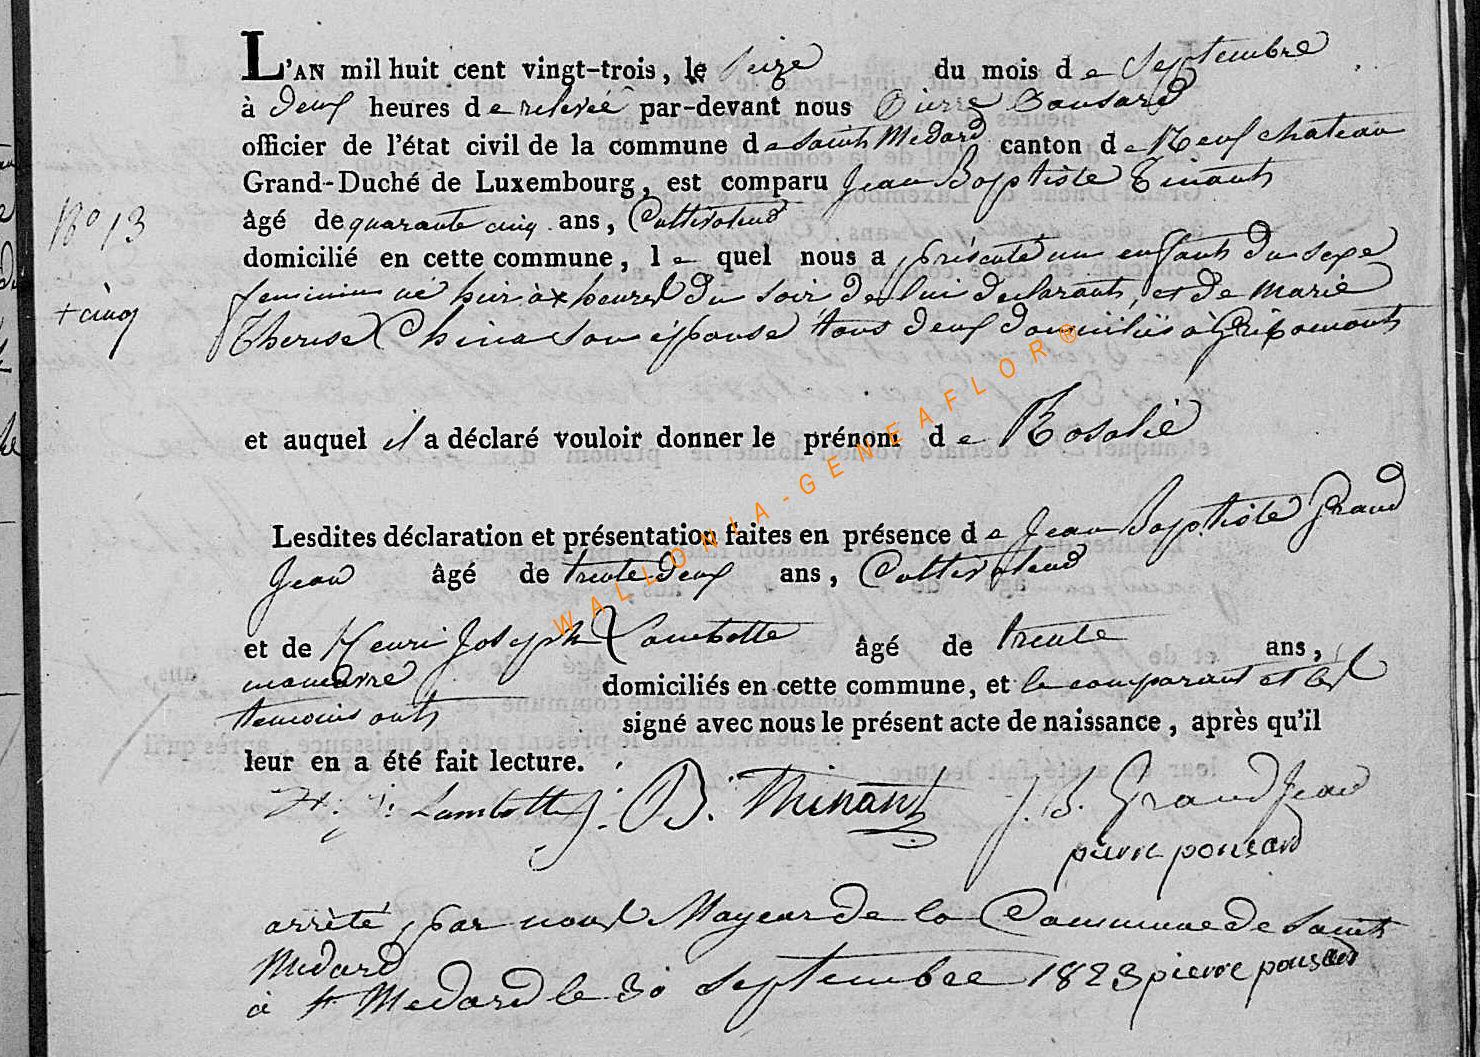 L'AN mil huit cent vingt-trois, le seize du mois de Septembre
à deux heures de relevée par-devant nous Pierre Ponsard
officier de l'état civil de la commune de Saint Medard canton de Neufchateau
Grand-Duché de Luxembourg, est comparu Jean Baptiste Tinant
N° 13
âgé de quarante cinq ans, Cultivateur
domicilié en cette commune, lequel nous a présenté un enfant du sexe
feminin né hier à + heures du soir de lui declarant, et de Marie
+ cinq
Therese China son épouse tous deux domiciliés à Gripomont
et auquel il a déclaré vouloir donner le prénom de Rosalie
Lesdites déclaration et présentation faites en présence de Jean Baptiste Grand
Jean âgé de trente deux ans, Cultivateur
et de Henri Joseph Lambotte âgé de trente ans,
manœuvre domiciliés en cette commune, et le comparant et les
temoins ont signé avec nous le présent acte de naissance, après qu'il
leur en a été fait lecture.
H. J. Lambotte J. B. Thinant J. B. Grand Jean
pierre ponsard
arrêté par nous Mayeur de la Commune de Saint
Medard
à St Medard le 30 Septembre 1823 pierre ponsard
WALLONIA-GENEAFLOR®